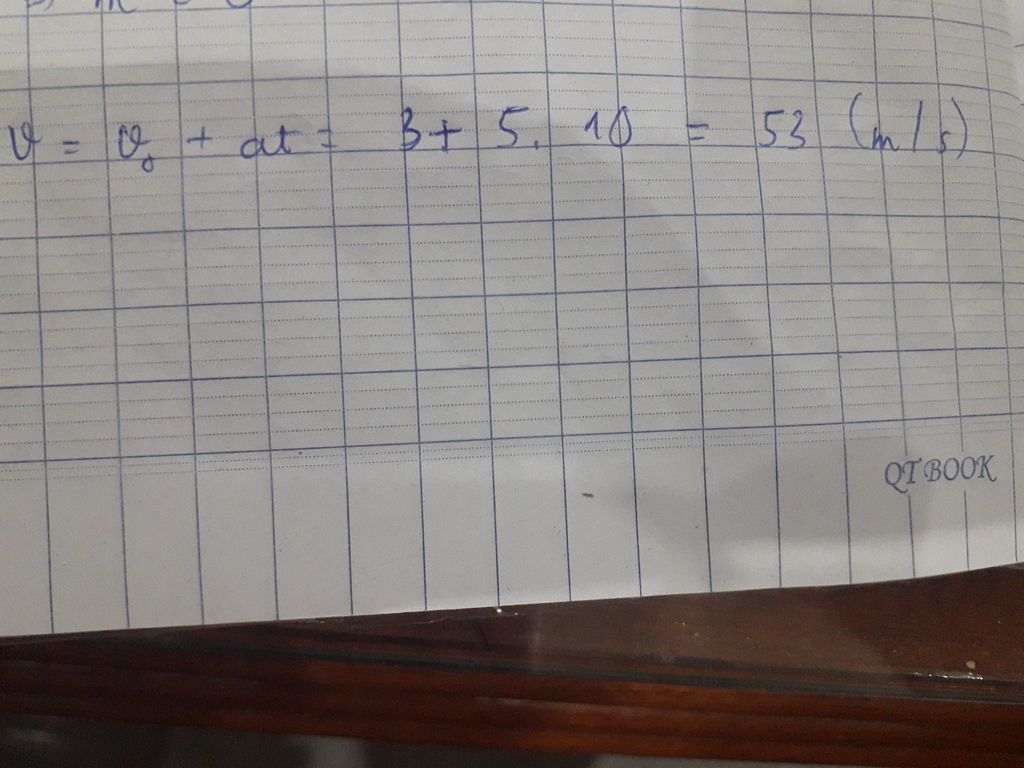 v = v₀ + at = 3 + 5. 10 = 53 (m/s)
QT BOOK